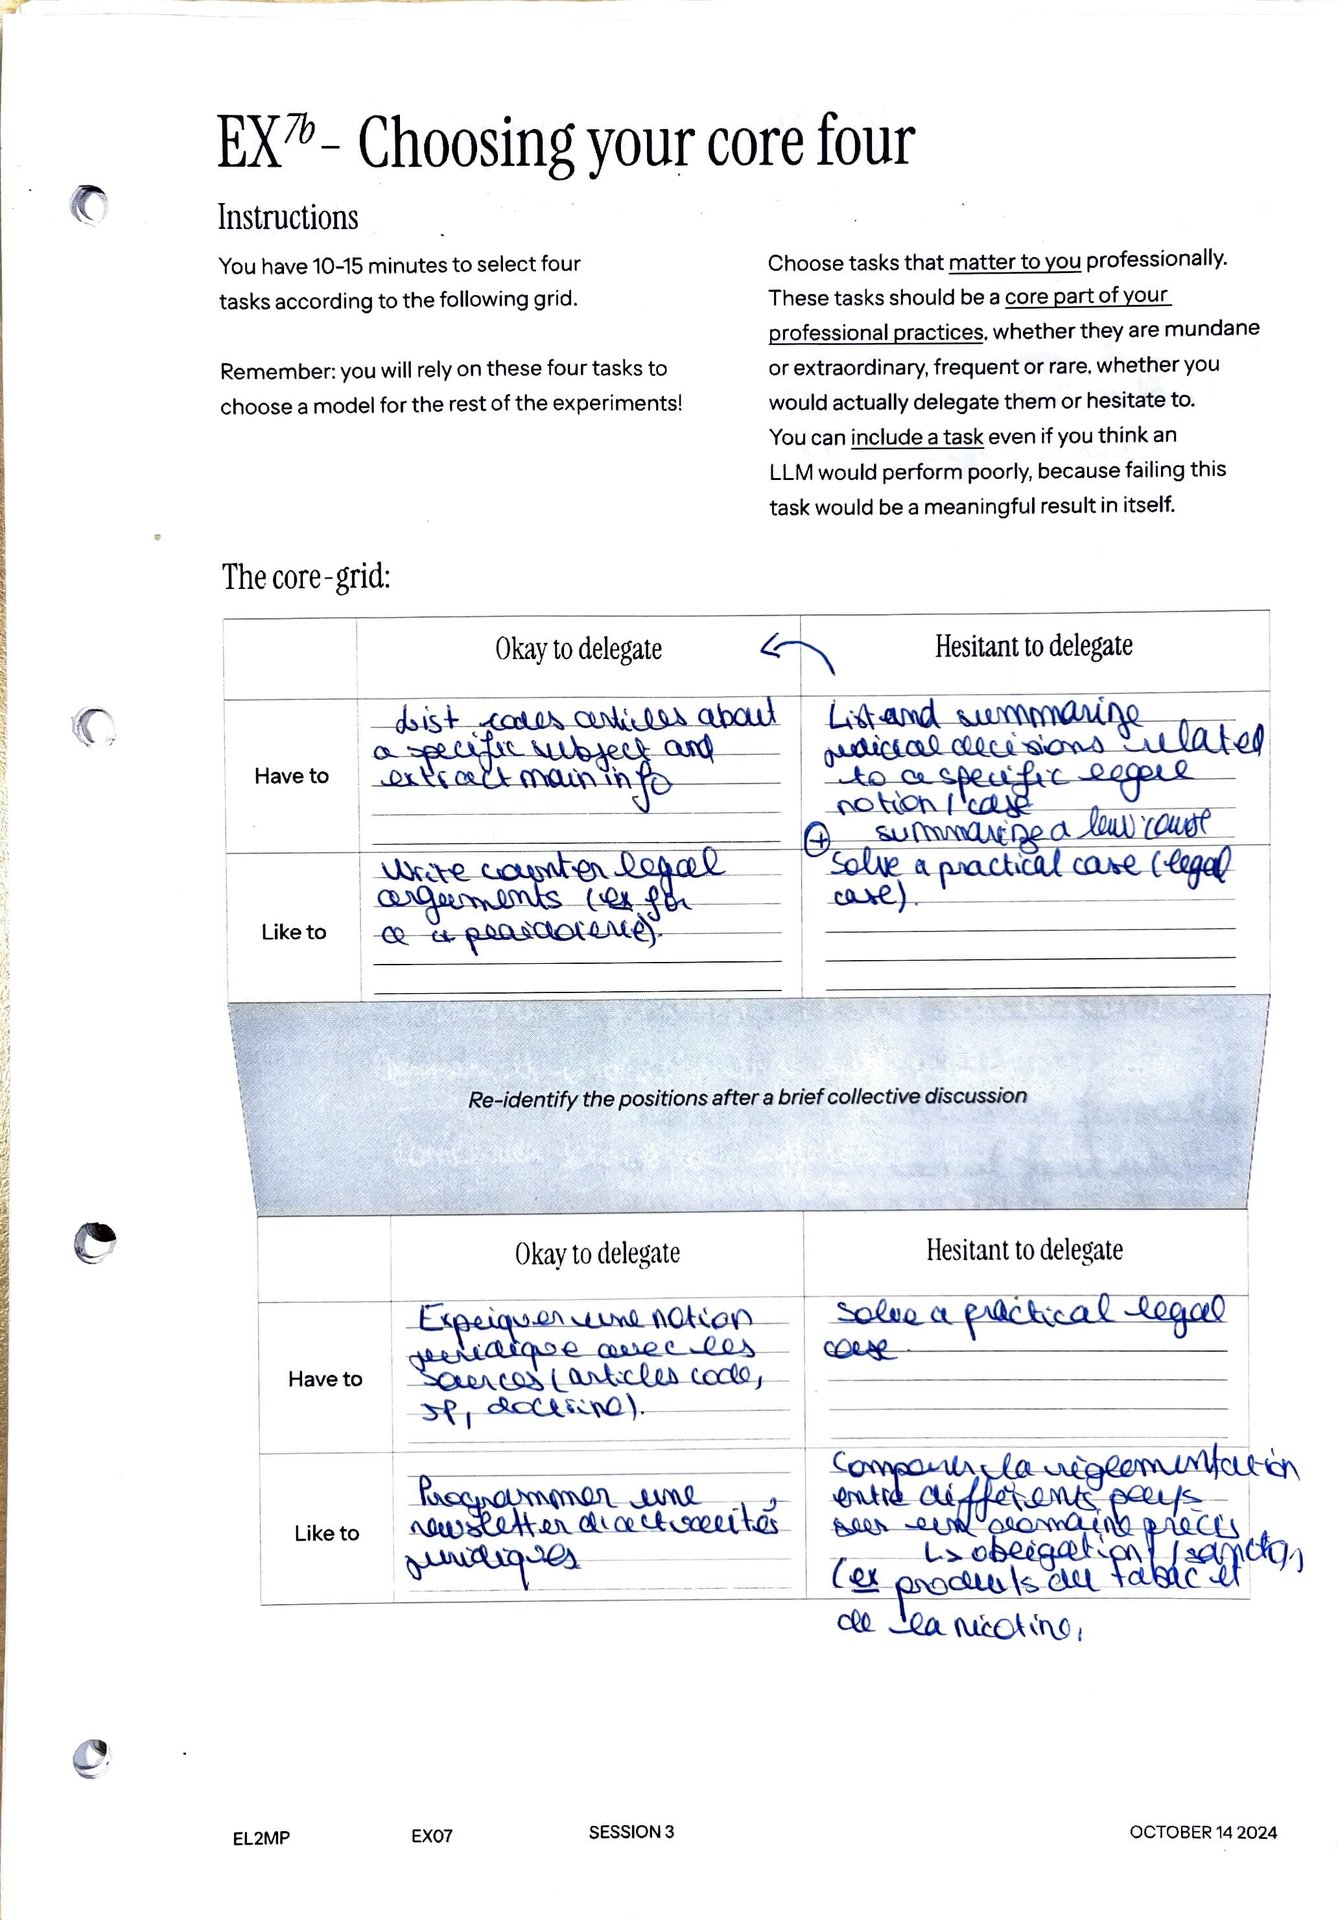 EX7b - Choosing your core four
Instructions
You have 10-15 minutes to select four
tasks according to the following grid.
Remember: you will rely on these four tasks to
choose a model for the rest of the experiments!
Choose tasks that matter to you professionally.
These tasks should be a core part of your
professional practices, whether they are mundane
or extraordinary, frequent or rare, whether you
would actually delegate them or hesitate to.
You can include a task even if you think an
LLM would perform poorly, because failing this
task would be a meaningful result in itself.
The core-grid:
Okay to delegate
Hesitant to delegate
Have to
List codes articles about
a specific subject and
extract main info
List and summarize
judicial decisions related
to a specific legal
notion / case
+ summarize a law course
Like to
Write counter legal
arguments (ex for
a plaidoirie).
Solve a practical case (legal
case).
Re-identify the positions after a brief collective discussion
Okay to delegate
Hesitant to delegate
Have to
Expliquer une notion
juridique avec les
sources (articles code,
JP, doctrine).
Solve a practical legal
case.
Like to
Programmer une
newsletter d'actualités
juridiques
Comparer la réglementation
entre différents pays
sur un domaine précis
↳ obligation /
(ex produits du tabac et
de la nicotine,
EL2MP
EX07
SESSION 3
OCTOBER 14 2024